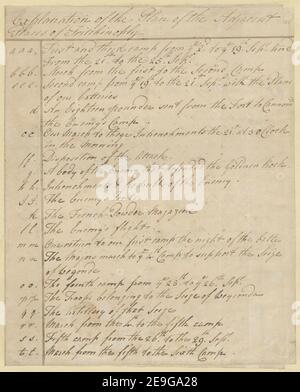 Explanation of the Plan of the Adjacent
Places of Trichinopoly
a a a. First and third camp from ye 2 to ye 19 Sepr. &
From the 21. to the 25. Sepr.
b b b. March from the first to the Second Camp
c c c. Second camp from ye 19. to the 21. Sepr. with the Plans
of our batteries
d An Eighteen pounder sent from the Fort to Cannonade
the Enemy's Camp
e.e. Our March to those Intrenchments the 21. at 3 O'Clock
in the Morning
f f Disposition of the Attack
g A body of the Enemy that defended the Golden Rock
h h Intrenchments of the Enemy
i i The Enemy's
k The French Powder Magazine
l l The Enemy's flight
m m Our return to our first camp the night of the battle
n n The Nagres march to ye Camp to support the Seize
of Weyconda
o o. The fourth camp from ye 25th to ye 26th. Sep.
p p. The Troops belonging to the Seize of Weyconda
q q The artillery of that Seize
r r. March from the 4th to the fifth camp
s s. Fifth camp from the 26th to the 29. Sep.
t t. March from the fifth to the Sixth Camp
alamy
Image ID: 2E9GA28
www.alamy.com